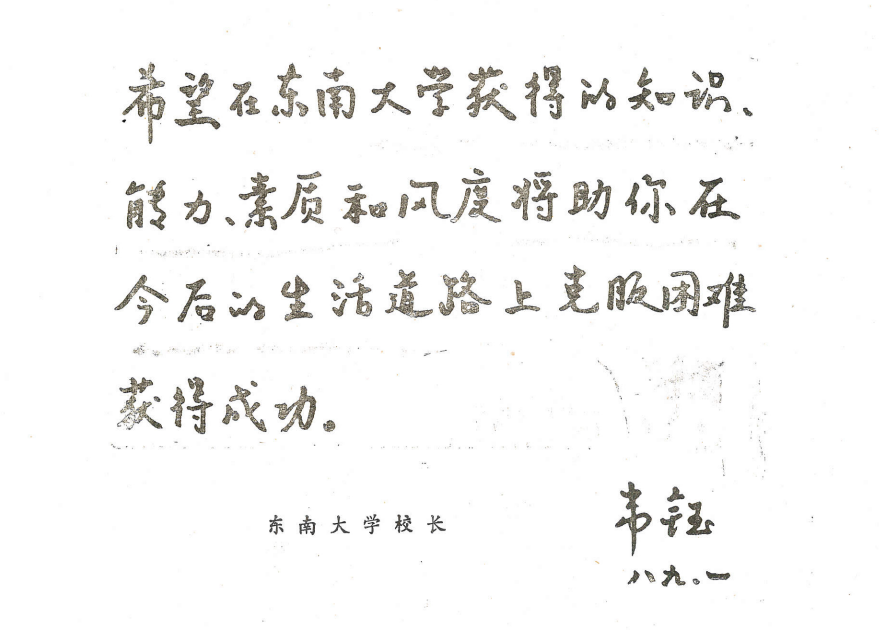 希望在东南大学获得的知识、
能力、素质和风度将助你在
今后的生活道路上克服困难
获得成功。
东南大学校长
韦钰
八九.一